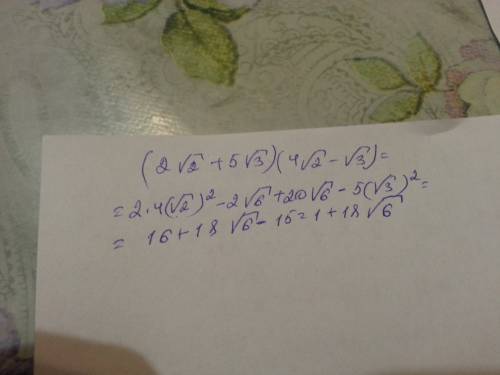 (2√2 + 5√3)(4√2 - √3) =
= 2·4(√2)² - 2√6 + 20√6 - 5(√3)² =
= 16 + 18√6 - 15 = 1 + 18√6